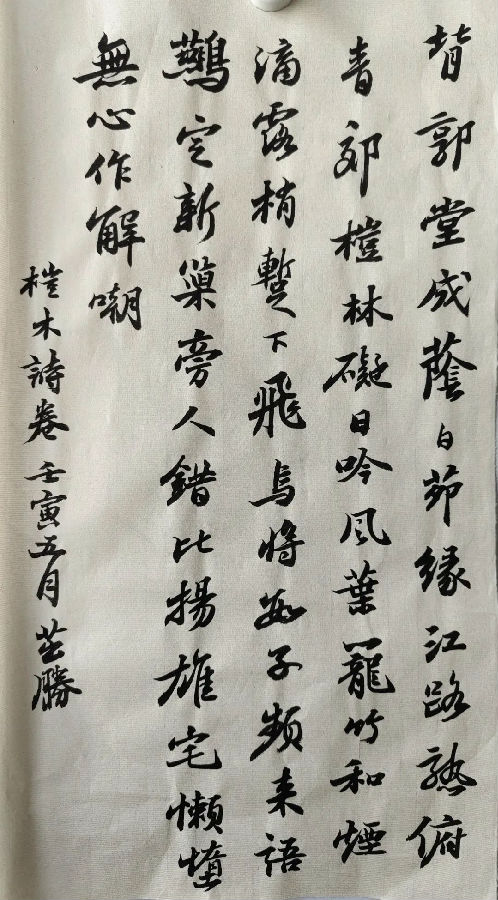 背郭堂成蔭白茆緣江路熟俯
青郊榿林礙日吟風葉籠竹和煙
滴露梢暫下飛烏將數子頻來語
鷰定新巢旁人錯比揚雄宅懶惰
無心作解嘲
榿木詩卷 壬寅五月 勝